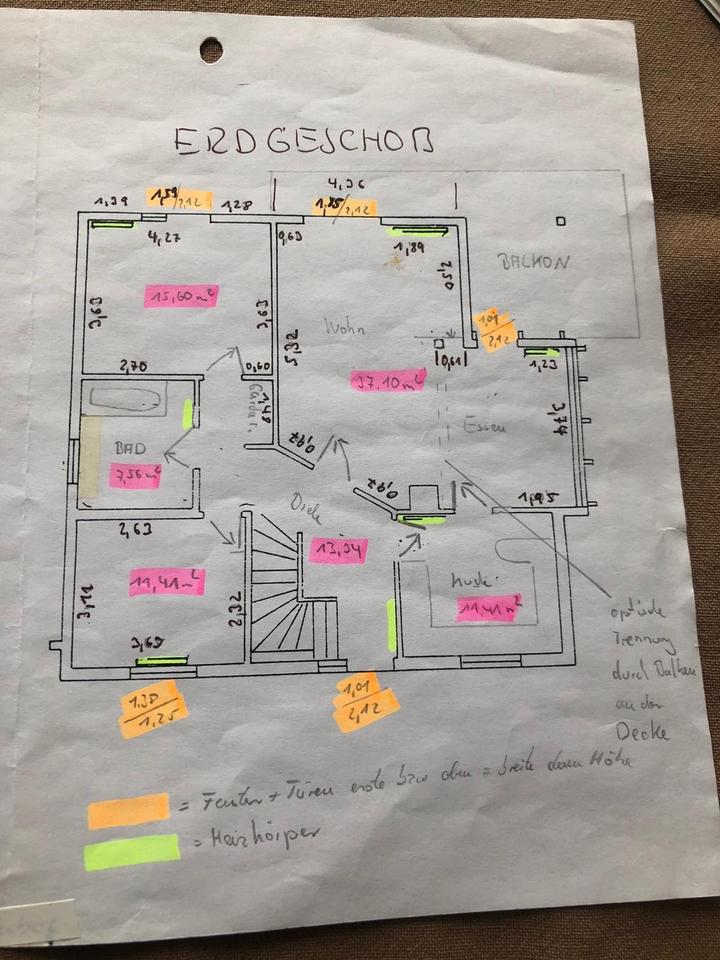 ERDGESCHOß
4,36
1,39
1,59/2,12
1,28
1,85/2,12
4,27
0,63
1,89
BALKON
3,63
15,60 m²
3,63
5,32
Wohn
2,50
1,01
2,12
0,61
1,23
2,70
0,60
37,10 m²
Garda r.
1,48
Essen
3,74
BAD
7,56 m²
0,97
0,97
1,95
Diele
2,63
13,94
11,41 m²
3,11
2,32
11,41 m²
3,65
optische
Trennung
durch Balken
an der
Decke
1,38
1,25
1,01
2,12
= Fenster + Türen erste bzw oben = breite dann Höhe
= Heizkörper